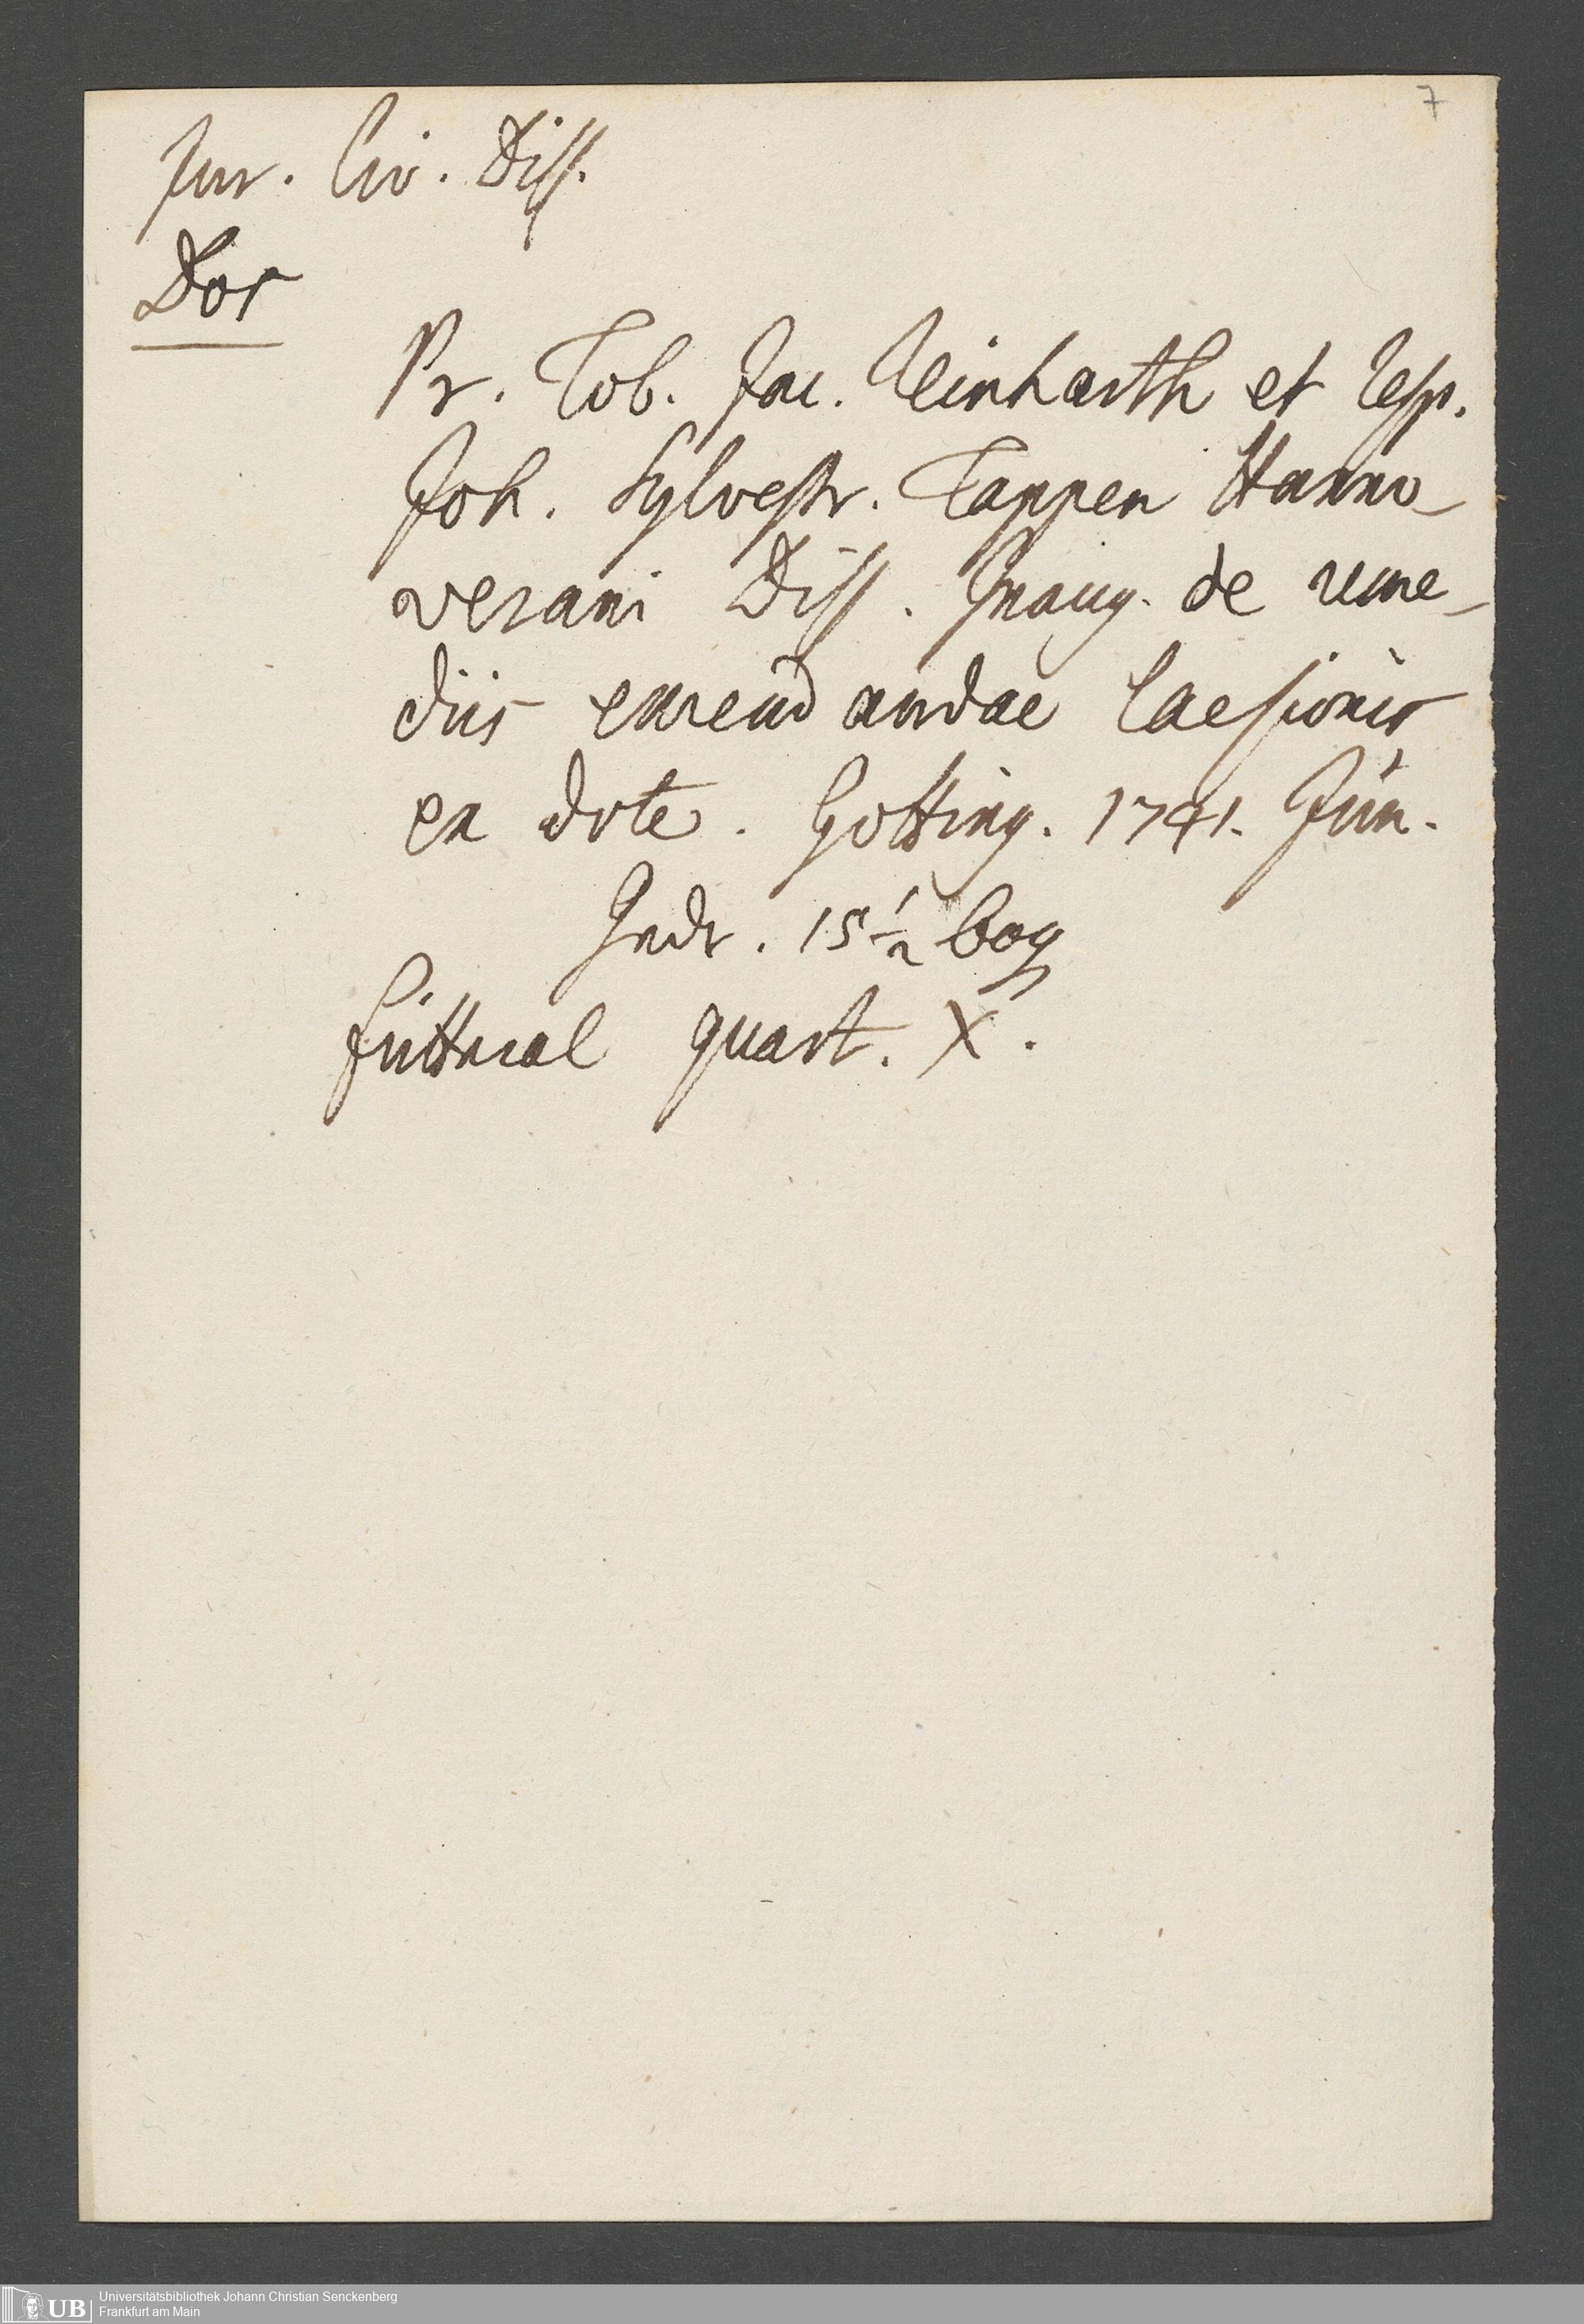 7
Jur. Civ. Diss.
Dos
Pr. Tob. Jac. Reinharth et Resp.
Joh. Sylvestr. Tappen Hanno-
verani Diss. Inaug. de reme-
diis emendandae laesionis
ex dote. Gotting. 1741. Jun.
15 1/2 bog
futteral quart. X.
Universitätsbibliothek Johann Christian Senckenberg
UB
Frankfurt am Main